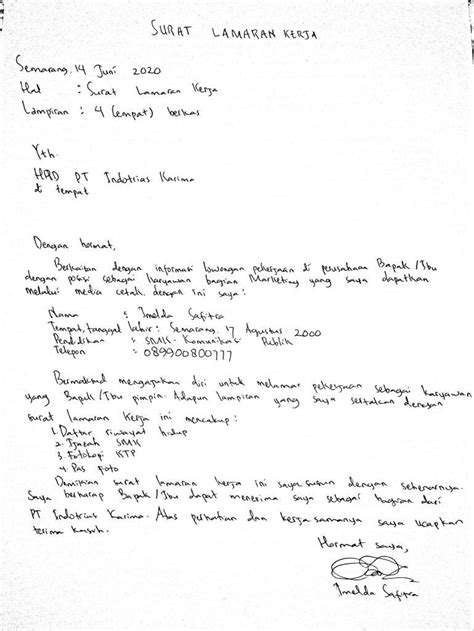 SURAT LAMARAN KERJA
Semarang, 14 Juni 2020
Hal : Surat Lamaran Kerja
Lampiran : 4 (empat) berkas
Yth.
HRD PT Indotrias Karima
di tempat
Dengan hormat,
Berkaitan dengan informasi lowongan pekerjaan di perusahaan Bapak/Ibu
dengan posisi sebagai karyawan bagian Marketing yang saya dapatkan
melalui media cetak. dengan ini saya :
Nama : Imelda Safitra
Tempat, tanggal lahir : Semarang, 17 Agustus 2000
Pendidikan : SMK Komunikasi Publik
Telepon : 089900800777
Bermaksud mengajukan diri untuk melamar pekerjaan sebagai karyawan
yang Bapak/Ibu pimpin. Adapun lampiran yang saya sertakan dengan
surat lamaran kerja ini mencakup :
1. Daftar riwayat hidup
2. Ijazah SMK
3. Fotokopi KTP
4. Pas Foto
Demikian surat lamaran kerja ini saya susun dengan sebenarnya.
Saya berharap Bapak/Ibu dapat menerima saya sebagai bagian dari
PT Indotrias Karima. Atas perhatian dan kerja samanya saya ucapkan
terima kasih.
Hormat saya,
Imelda Safitra